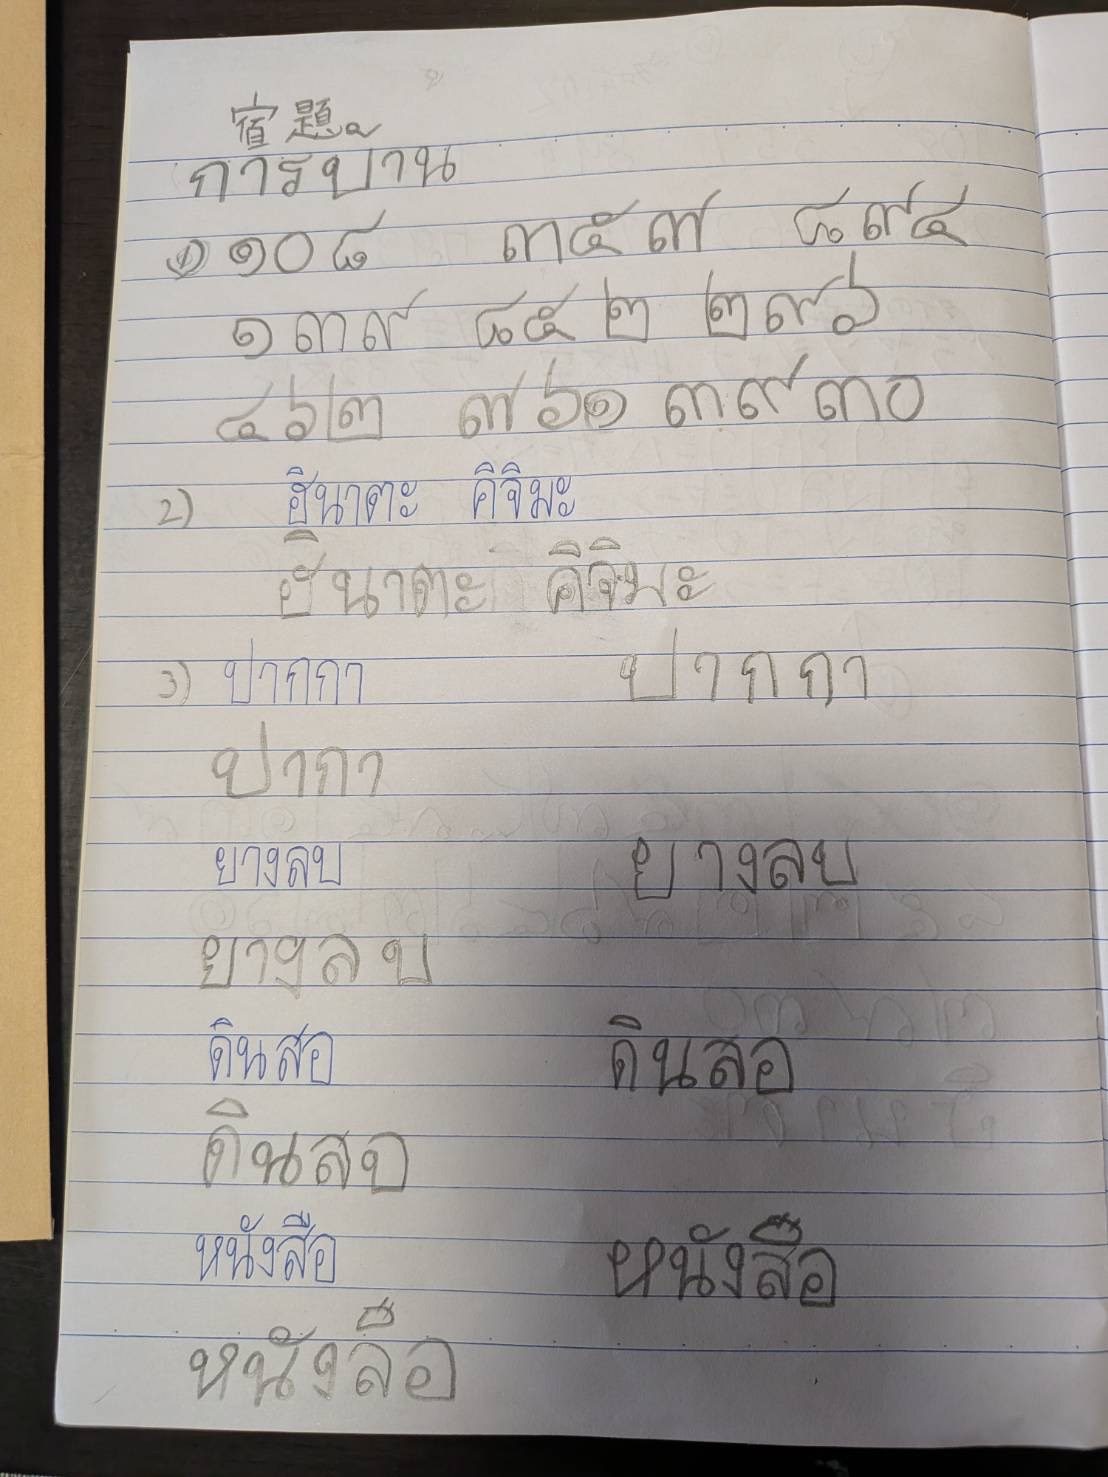 宿題
การบาน
1) ๑๐๘ ๓๕๗ ๘๙๔
๑๓๙ ๘๕๒ ๒๙๖
๔๖๒ ๗๖๑ ๓๙๓๐
2) ฮินาตะ คิจิมะ
ฮินาตะ คิจิมะ
3) ปากกา ปากกา
ปากา
ยางลบ ยางลบ
ยางลบ
ดินสอ ดินสอ
ดินสอ
หนังสือ หนังสือ
หนังสือ